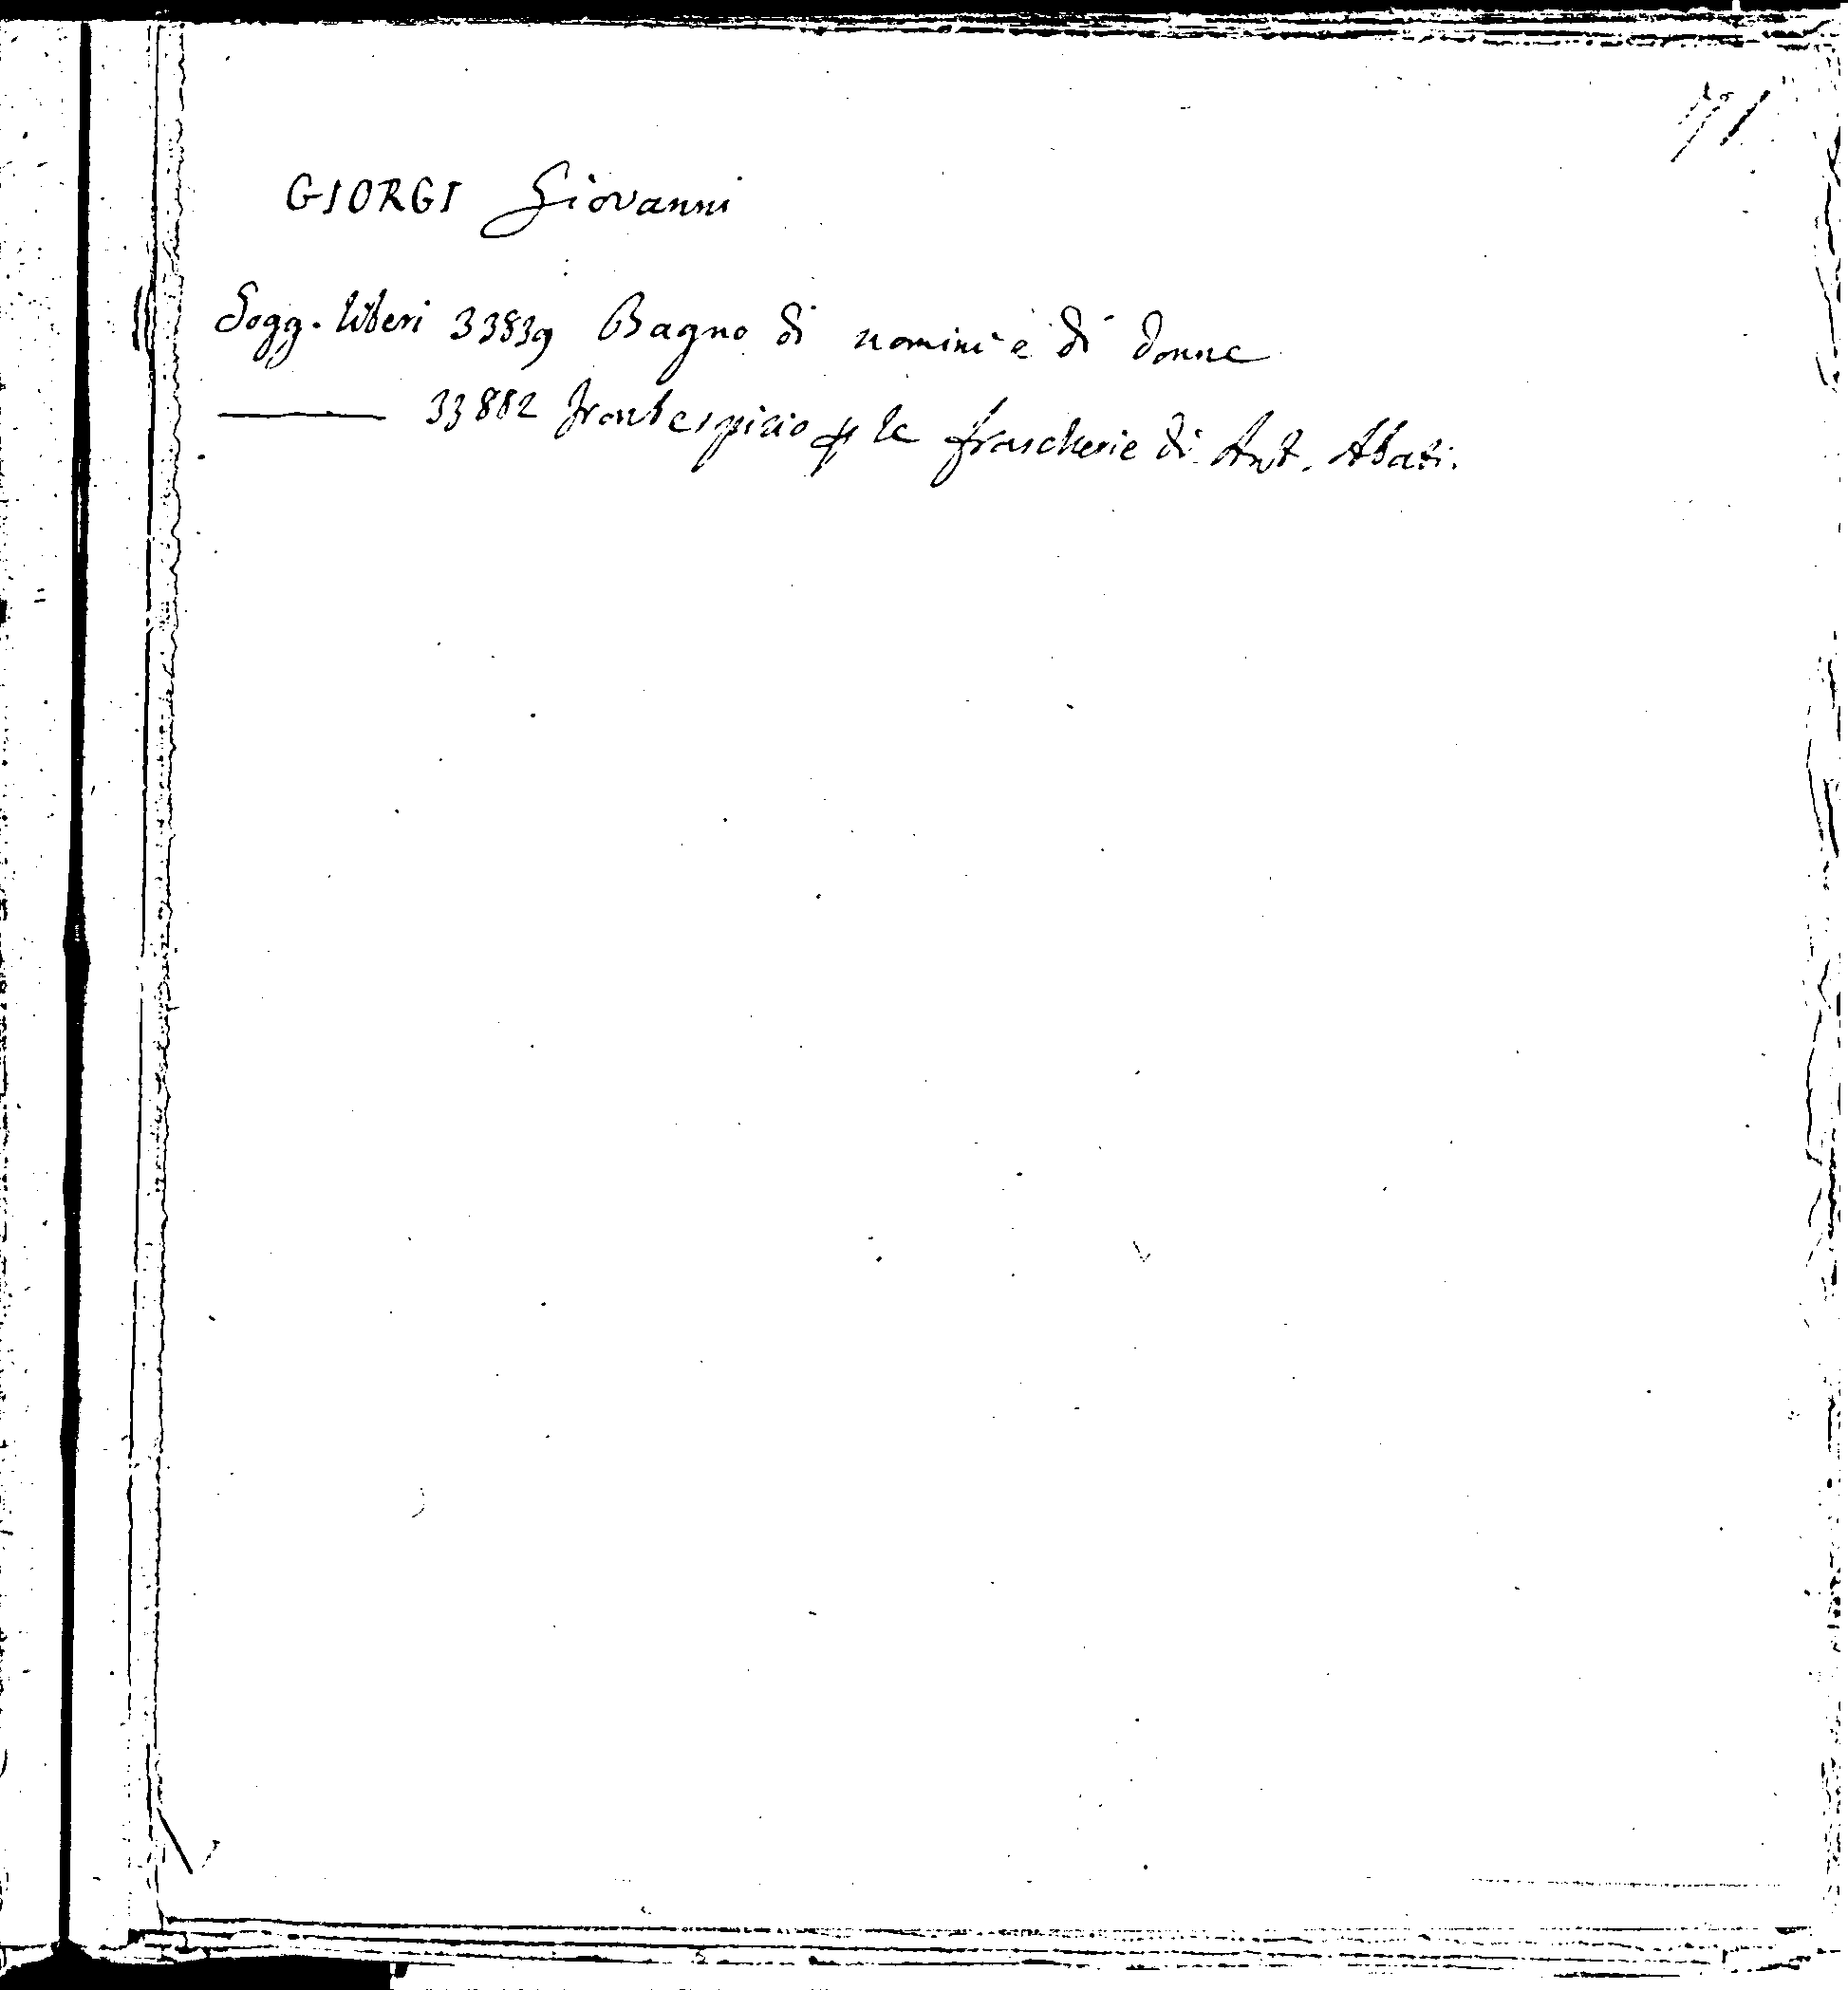 71
GIORGI Giovanni
Sogg. liberi 33839 Bagno di uomini e di donne
——— 33882 frontespizio p le frascherie di Ant. Abati.